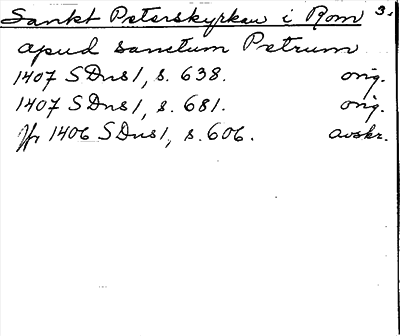 Sankt Peterskyrkan i Rom 3.
apud sanctum Petrum
1407 SDns1, s. 638. orig.
1407 SDns1, s. 681. orig.
Jfr 1406 SDns1, s. 606. avskr.